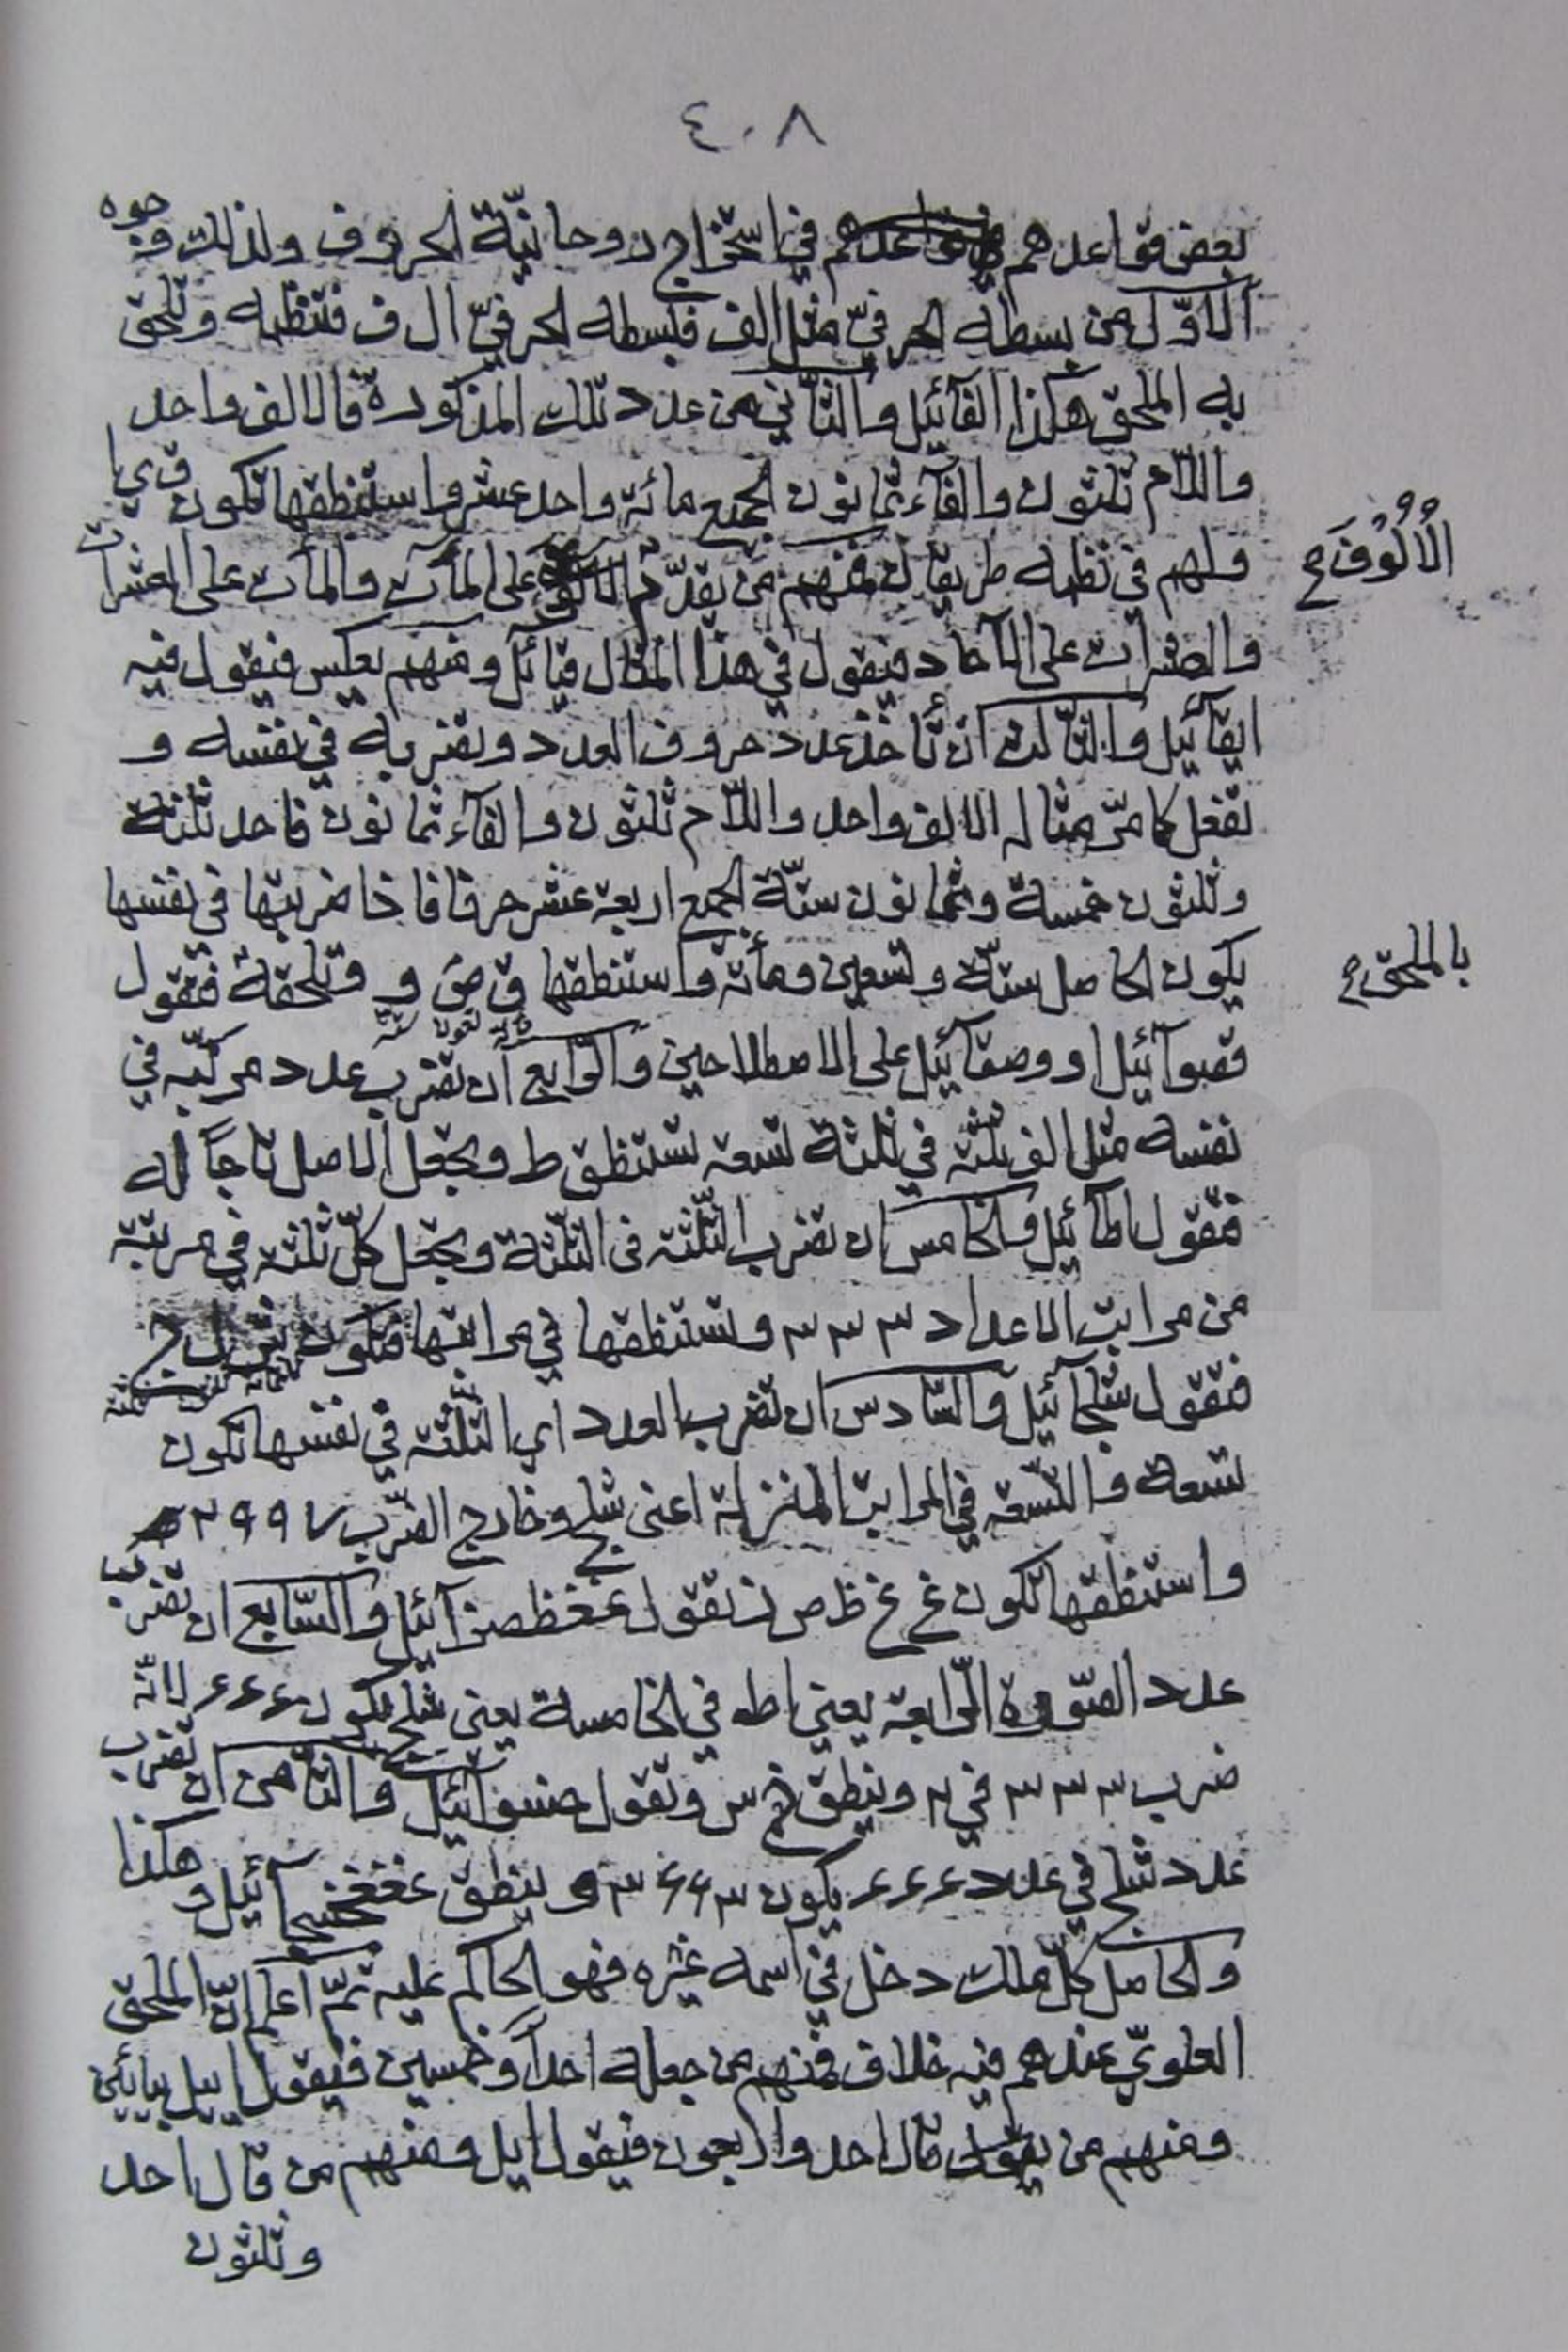 ٤٠٨
بعض قواعدهم في استخراج روحانيّة الحروف ولذلك وجوه
الاوّل من بسطه الحرفيّ مثل الف فبسطه الحرفيّ ال ف فتنظمه وتلحق
به الملحق هكذا الفآئيل والثّاني من عدد تلك المذكورة فالالف واحد
واللّام ثلثون والفآء ثمانون الجميع مائة واحدعشر واستنطقها تكون ق ي ا
ولهم في نظمه طريقان فمنهم من يقدّم الالوف على المآت والمآت على العشرات
الْاُلُوُفَ ح
والعشرات على الآحاد فيقول في هذا المثال قيائل ومنهم يعكس فيقول فيه
ايقآئيل والثّالث ان تأخذ عدد حروف العدد وتضربه في نفسه و
تفعل كما مرّ مثاله الالف واحد واللّام ثلثون والفآء ثمانون فاحد ثلثة
وثلثون خمسة وثمانون ستّة الجميع اربعة عشر حرفا فاذا ضربتها في نفسها
يكون الحاصل ستّة وتسعين ومأئة واستنطقها ق ص و وتلحقه فتقول
بالملحق ح
مأة تسعون ستّة
قصوآئيل او وصقآئيل على الاصطلاحين والرّابع ان تضرب عدد مركّبه في
نفسه مثل الف ثلثة في ثلثة تسعة تستنطق ط وتجعل الاصل تاجاً له
فتقول اطآئيل والخامس ان تضرب الثّلثة في الثّلثة وتجعل كلّ ثلثة في مرتبة
من مراتب الاعداد ٣ ٣ ٣ وتستنطقها في مراتبها فتكون ش ل ج
فتقول شلجآئيل والسّادس ان تضرب العدد اي الثّلثة في نفسها تكون
تسعة والتّسعة في المراتب المنزلة اعني شلج وخارج الضّرب ٢٩٩٧
واستنطقها تكون غ غ ظ ص ز تقول غغظصزآئيل والسّابع ان تضرب
عدد الصّورة الرّابعة يعني اط في الخامسة يعني شلج تكون ۶۶۶ لانّه
ضرب ٣ ٣ ٣ في ٢ وينطق خ س و تقول خسوآئيل والثّامن ان تضرب
عدد شلج في عدد ۶۶۶ يكون وينطق آئيل وهكذا
والحاصل كلّ ملك دخل في اسمه غيره فهو الحاكم عليه ثمّ اعلم انّ الملحق
العلويّ عندهم فيه خلاف فمنهم من جعله احداً وخمسين فيقول اييل بيائين
ومنهم من قال احد واربعون فيقول ايل ومنهم من قال احد
وثلثون